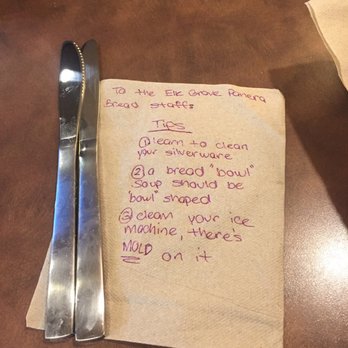 To the Elk Grove Panera
Bread staff:
Tips
① learn to clean
your silverware
② a bread "bowl"
soup should be
"bowl" shaped
③ clean your ice
machine, there's
MOLD on it